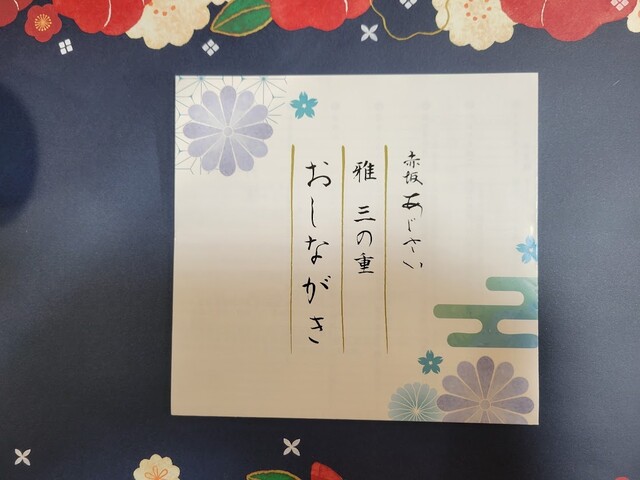 赤坂 あじさい
雅 三の重
おしながき